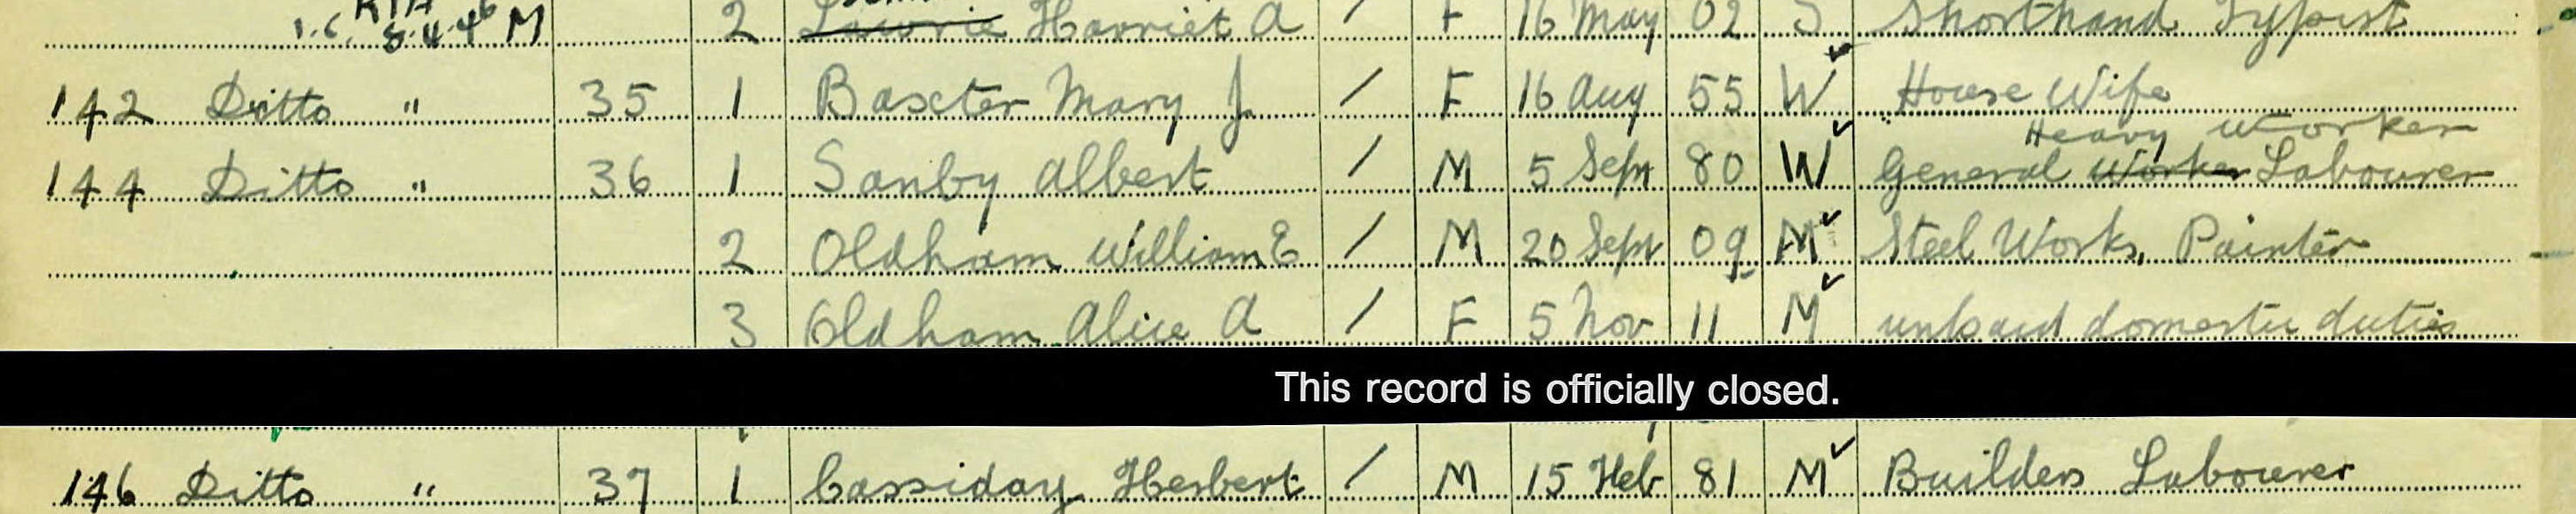 2 Lawrie Harriet A / F 16 May 02 S Shorthand Typist
8.4.46 M
142 Ditto " 35 1 Baxter Mary J / F 16 Aug 55 W House Wife
Heavy Worker
144 Ditto " 36 1 Sanby Albert / M 5 Sept 80 W General Worker Labourer
2 Oldham William E / M 20 Sept 09 M Steel Works, Painter
3 Oldham Alice A / F 5 Nov 11 M unpaid domestic duties
This record is officially closed.
146 Ditto " 37 1 Cassiday Herbert / M 15 Feb 81 M Builders Labourer